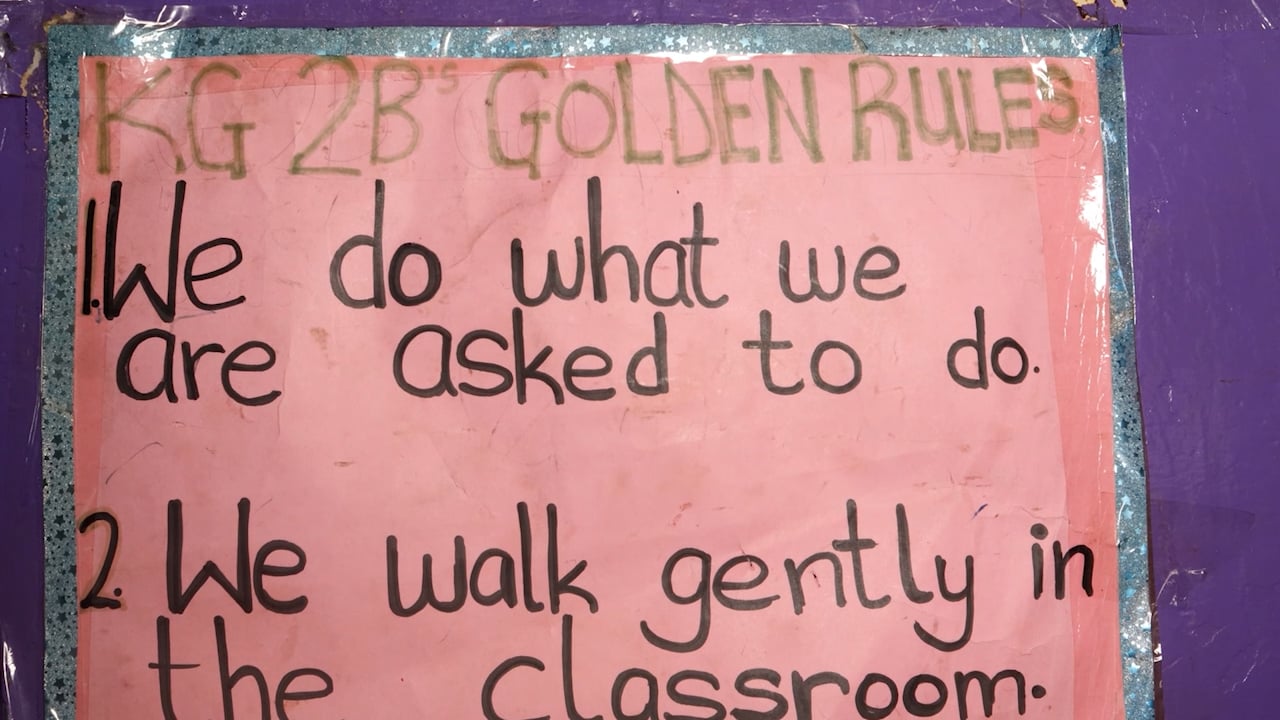 KG 2B's GOLDEN RULES
1. We do what we
are asked to do.
2. We walk gently in
the classroom.